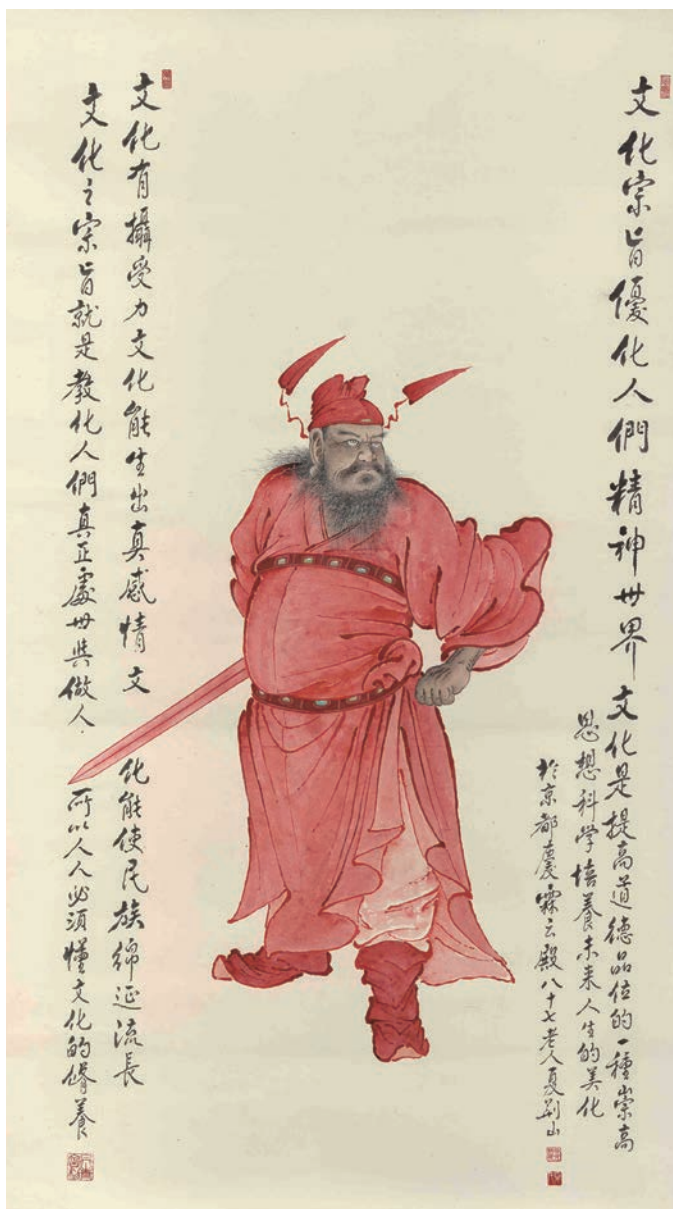 文化宗旨優化人們精神世界文化是提高道德品位的一種崇高
思想科學培養未来人生的美化
於京都慶霖云殿八十七老人夏荆山
文化有攝受力文化能生出真感情文化能使民族綿延流長
文化之宗旨就是教化人們真正處世與做人所以人人必須懂文化的脩養